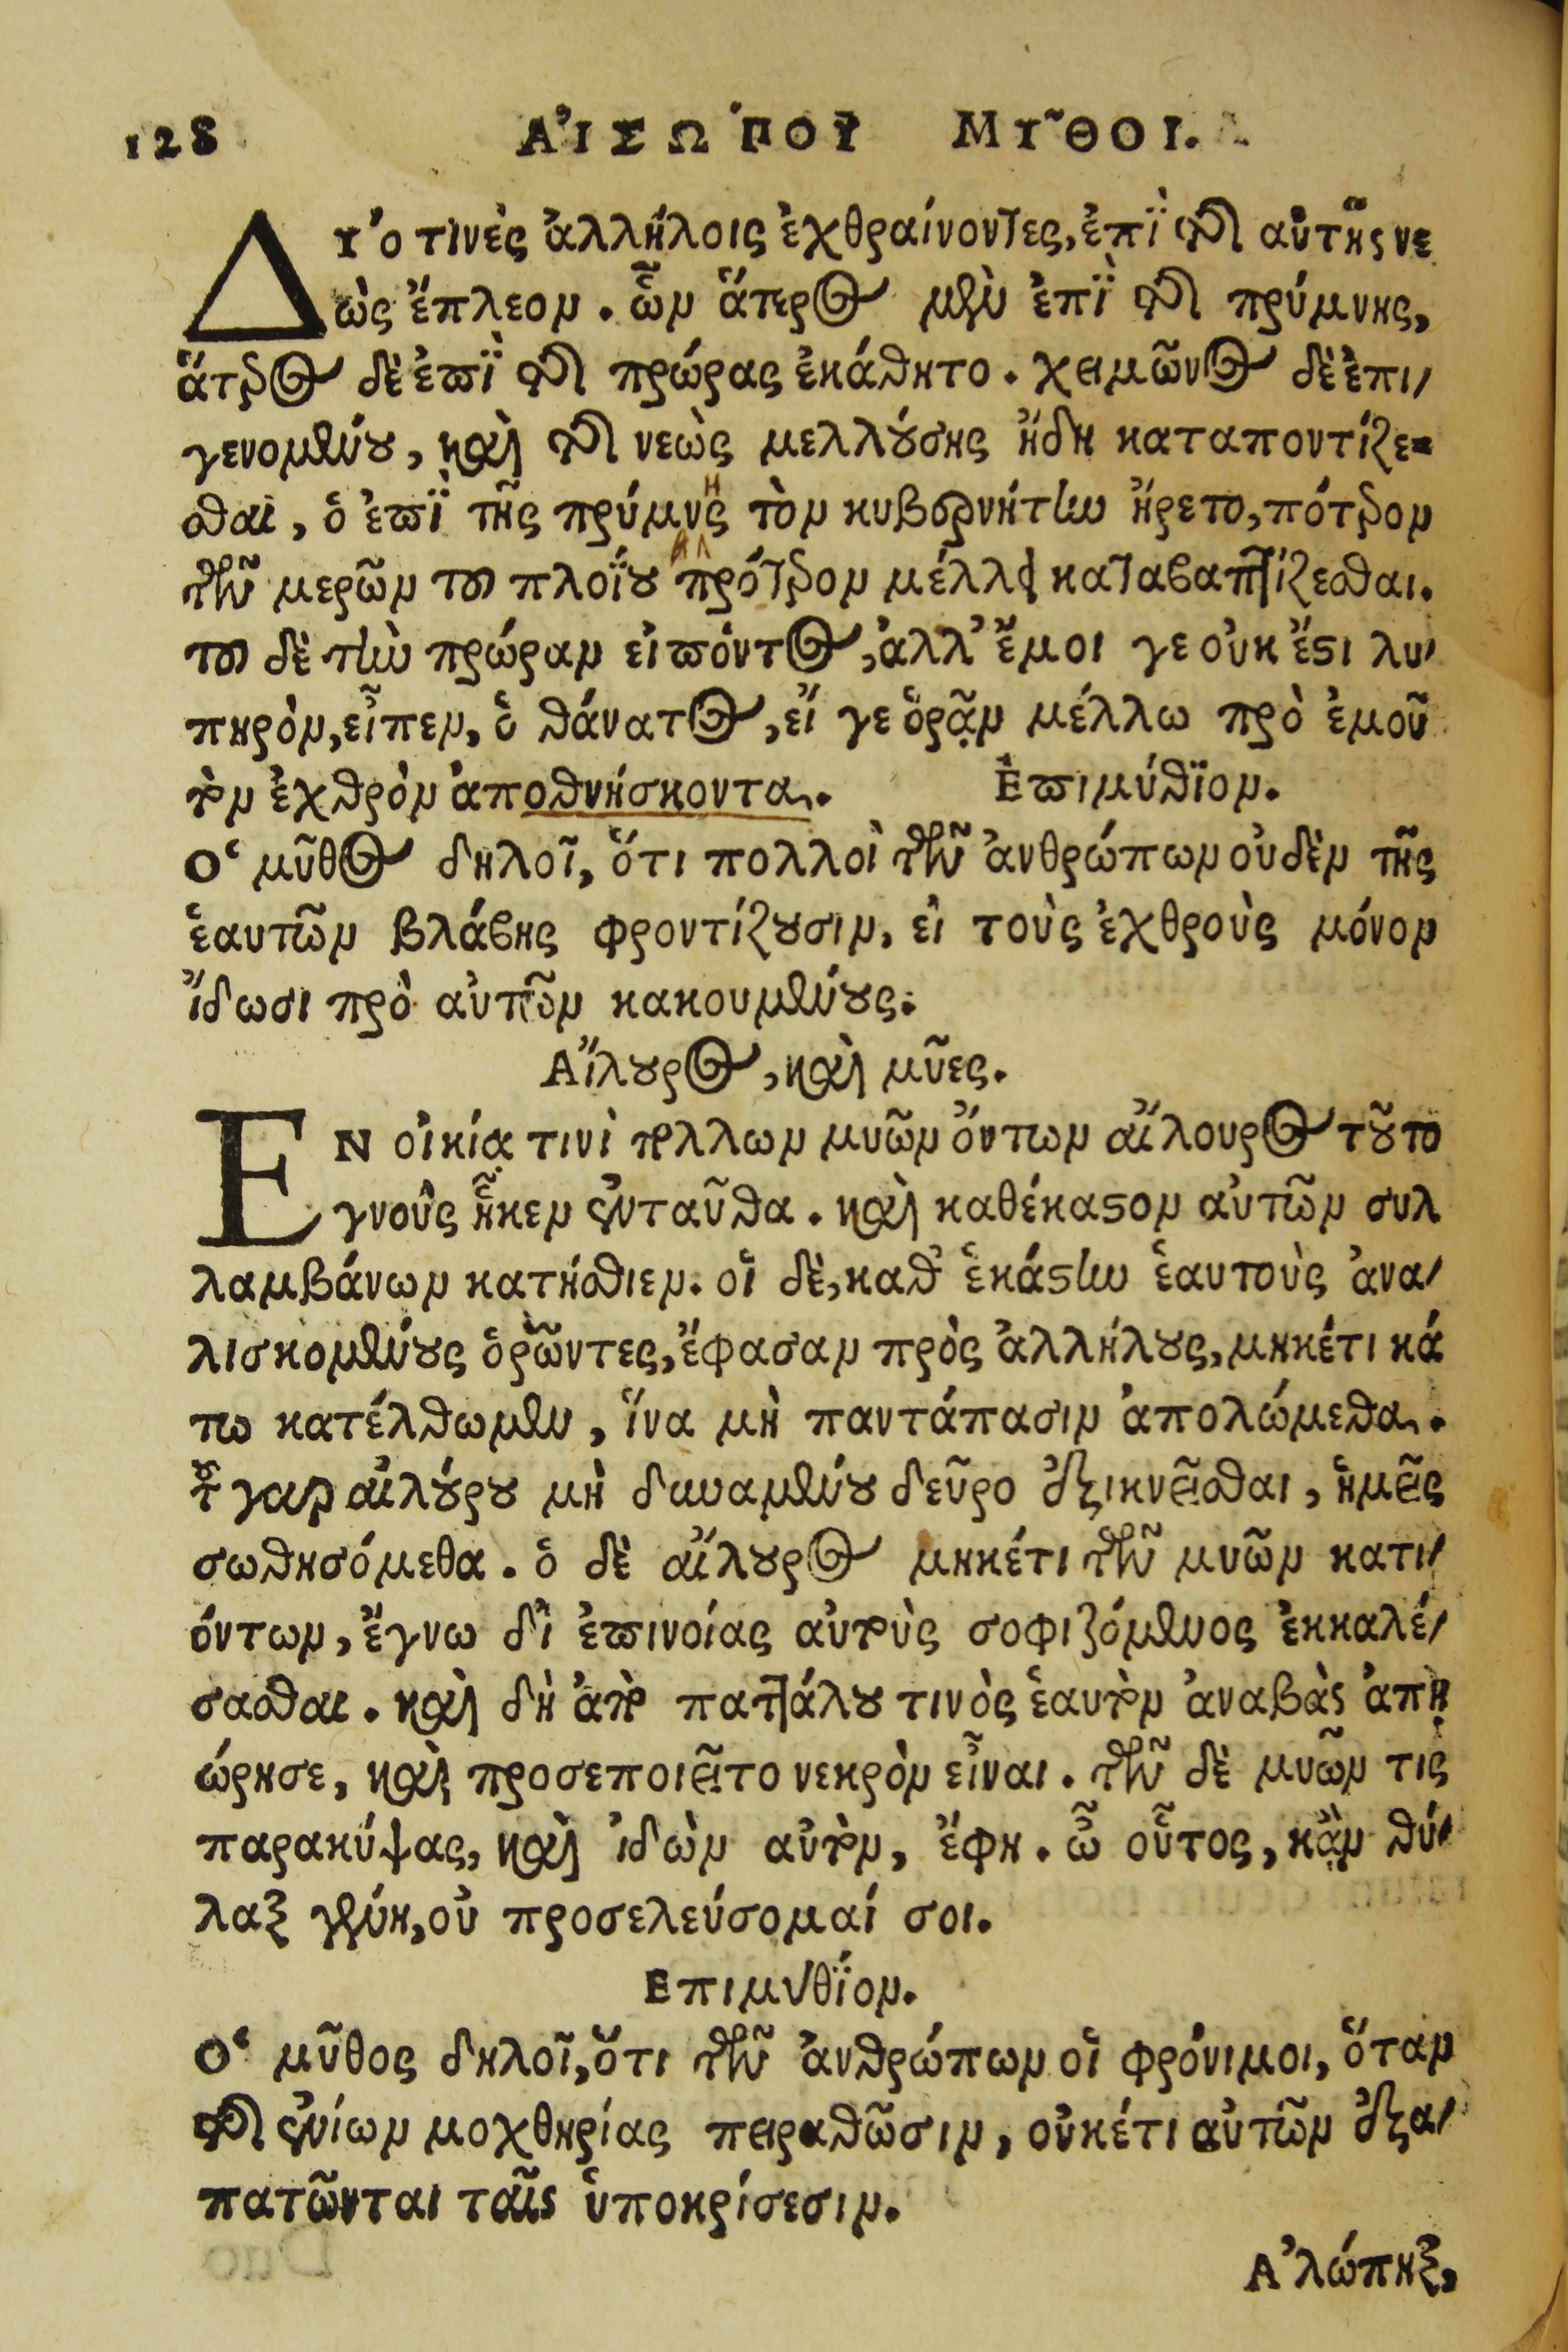 128 ΑἸΣΩΠΟΥ ΜΥ͂ΘΟΙ.
ΔΎο τινὲς ἀλλήλοις ἐχθραίνοντες, ἐπὶ τῆς αὐτῆς νε
ὼς ἔπλεον. ὧν ἅτερος μὲν ἐπὶ τῆς πρύμνης,
ἅτερος δὲ ἐπὶ τῆς πρώρας ἐκάθητο. χειμῶνος δὲ ἐπι/
γενομένου, καὶ τῆς νεὼς μελλούσης ἤδη καταποντίζε=
σθαι, ὁ ἐπὶ τῆς πρύμνς τὸν κυβερνήτην ἤρετο, πότερον
τῶν μερῶν τοῦ πλοίου πρότερον μέλλει καταβαπτίζεσθαι.
τοῦ δὲ τὴν πρώραν εἰπόντος, ἀλλ' ἔμοι γε οὐκ ἔστι λυ/
πηρὸν, εἶπεν, ὁ θάνατος, εἴ γε ὁρᾷν μέλλω πρὸ ἐμοῦ
τὸν ἐχθρὸν ἀποθνήσκοντα. Ἐπιμύθιον.
Ὁ μῦθος δηλοῖ, ὅτι πολλοὶ τῶν ἀνθρώπων οὐδὲν τῆς
ἑαυτῶν βλάβης φροντίζουσιν, εἰ τοὺς ἐχθροὺς μόνον
ἴδωσι πρὸ αὐτῶν κακουμένους.
Αἴλουρος, καὶ μῦες.
ΕΝ οἰκίᾳ τινὶ πολλων μυῶν ὄντων αἴλουρος τοῦτο
γνοὺς ἧκεν ἐνταῦθα. καὶ καθέκαστον αὐτῶν συλ
λαμβάνων κατήσθιεν. οἱ δὲ, καθ' ἑκάστην ἑαυτοὺς ἀνα/
λισκομένους ὁρῶντες, ἔφασαν πρὸς ἀλλήλους, μηκέτι κά
τω κατέλθωμεν, ἵνα μὴ παντάπασιν ἀπολώμεθα.
τοῦ γαρ αἰλούρου μὴ δυναμένου δεῦρο ἐξικνεῖσθαι, ἡμεῖς
σωθησόμεθα. ὁ δὲ αἴλουρος μηκέτι τῶν μυῶν κατι/
όντων, ἔγνω δι' ἐπινοίας αὐτοὺς σοφιζόμενος ἐκκαλέ/
σασθαι. καὶ δὴ ἀπὸ παττάλου τινὸς ἑαυτὸν ἀναβὰς ἀπῃ
ώρησε, καὶ προσεποιεῖτο νεκρὸν εἶναι. τῶν δὲ μυῶν τις
παρακύψας, καὶ ἰδὼν αὐτὸν, ἔφη. ὦ οὗτος, κᾂν θύ/
λαξ γένῃ, οὐ προσελεύσομαί σοι.
Επιμύθιον.
Ὁ μῦθος δηλοῖ, ὅτι τῶν ἀνθρώπων οἱ φρόνιμοι, ὅταν
τῆς ἐνίων μοχθηρίας πειραθῶσιν, οὐκέτι αὐτῶν ἐξα/
πατῶνται ταῖς ὑποκρίσεσιν.
Ἀλώπηξ,